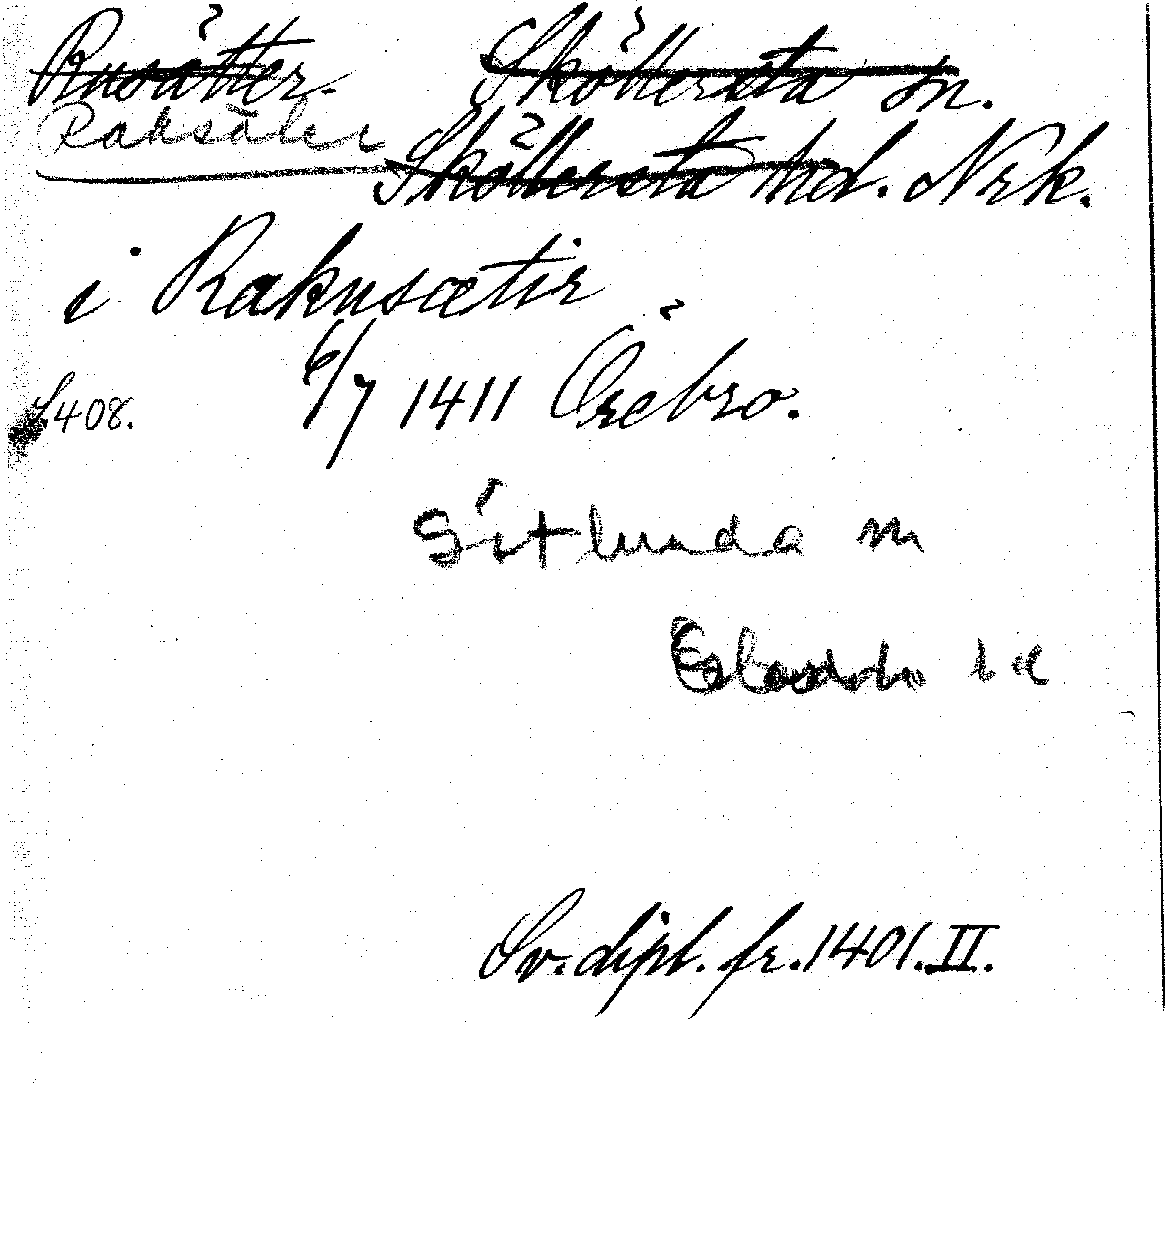 Rusätter. Skötlersta sn.
Raksäter
Skötlersta hd. Nrk.
i Raknsætir
s. 408. 6/7 1411 Örebro.
Götlunda sn
Glanshammar hd
Sv. dipl. fr. 1401. II.